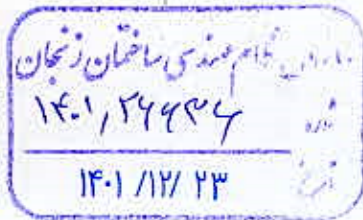 سازمان نظام مهندسی ساختمان زنجان
شماره ۱۴۰۱,۲۶۶۳۶
تاریخ ۱۴۰۱/۱۲/۲۳